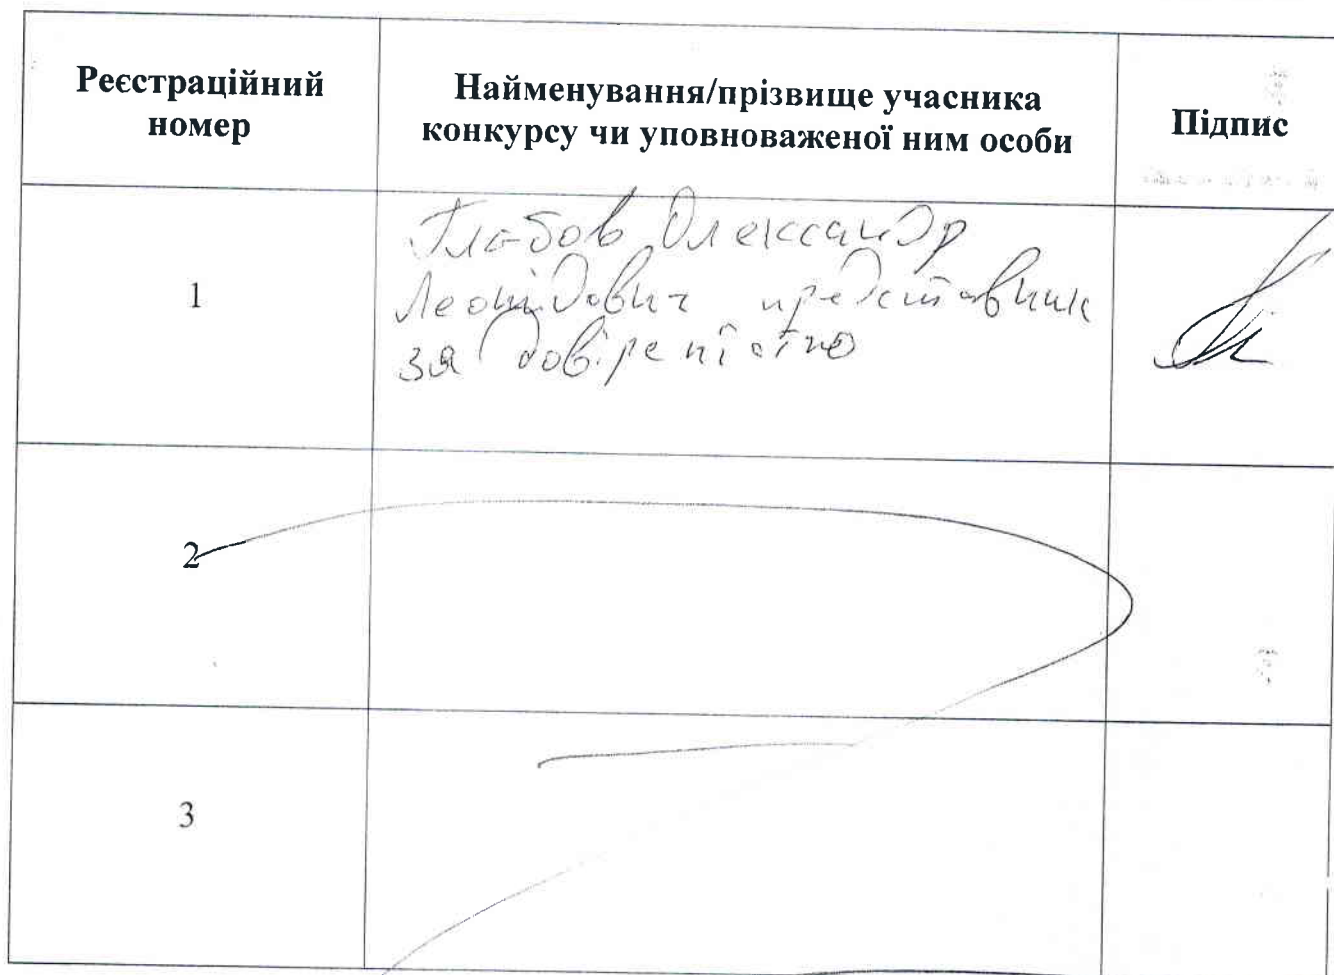 Реєстраційний
номер
Найменування/прізвище учасника
конкурсу чи уповноваженої ним особи
Підпис
1
Олександр
Леонідович представник
за довіреністю
2
3